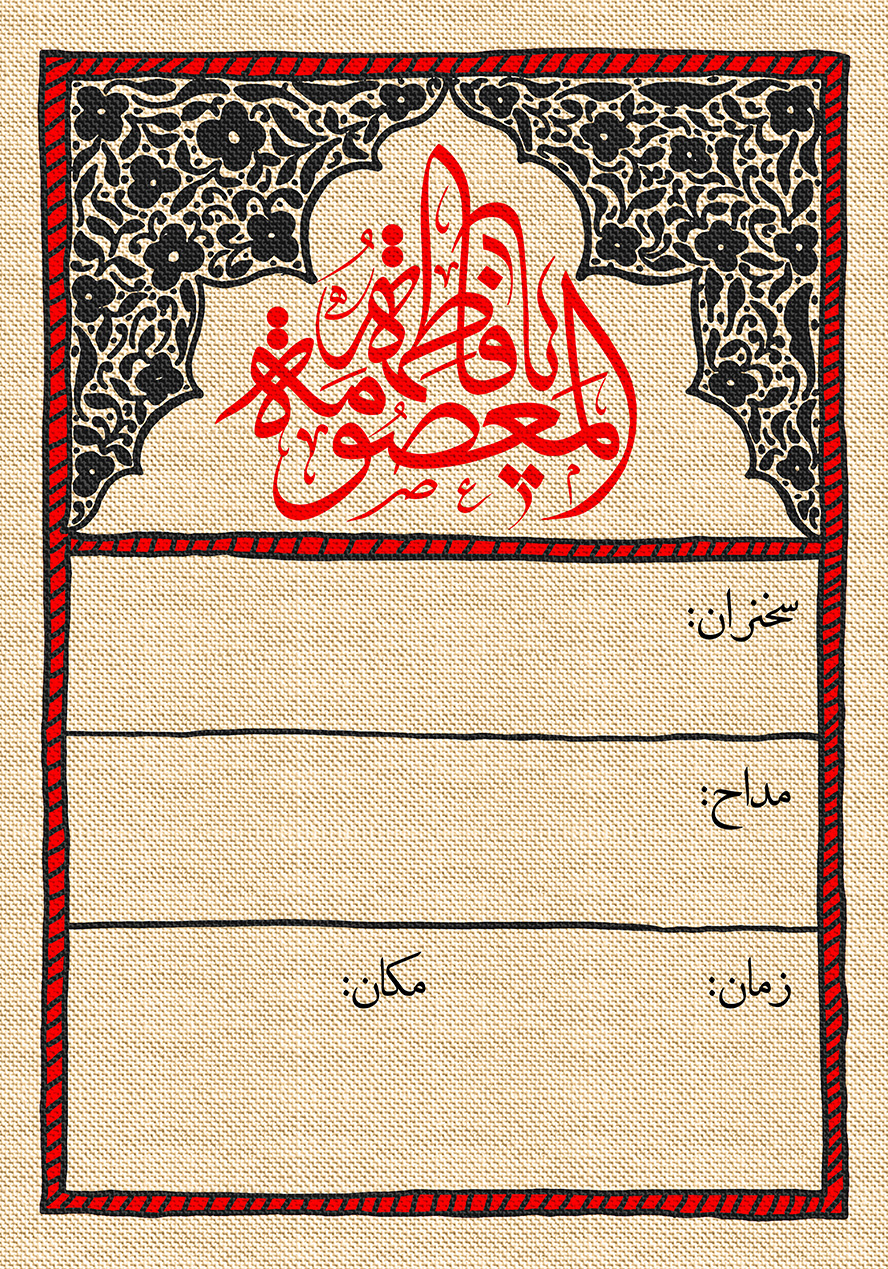 یا فاطمة المعصومة
سخنران:
مداح:
زمان: مکان: